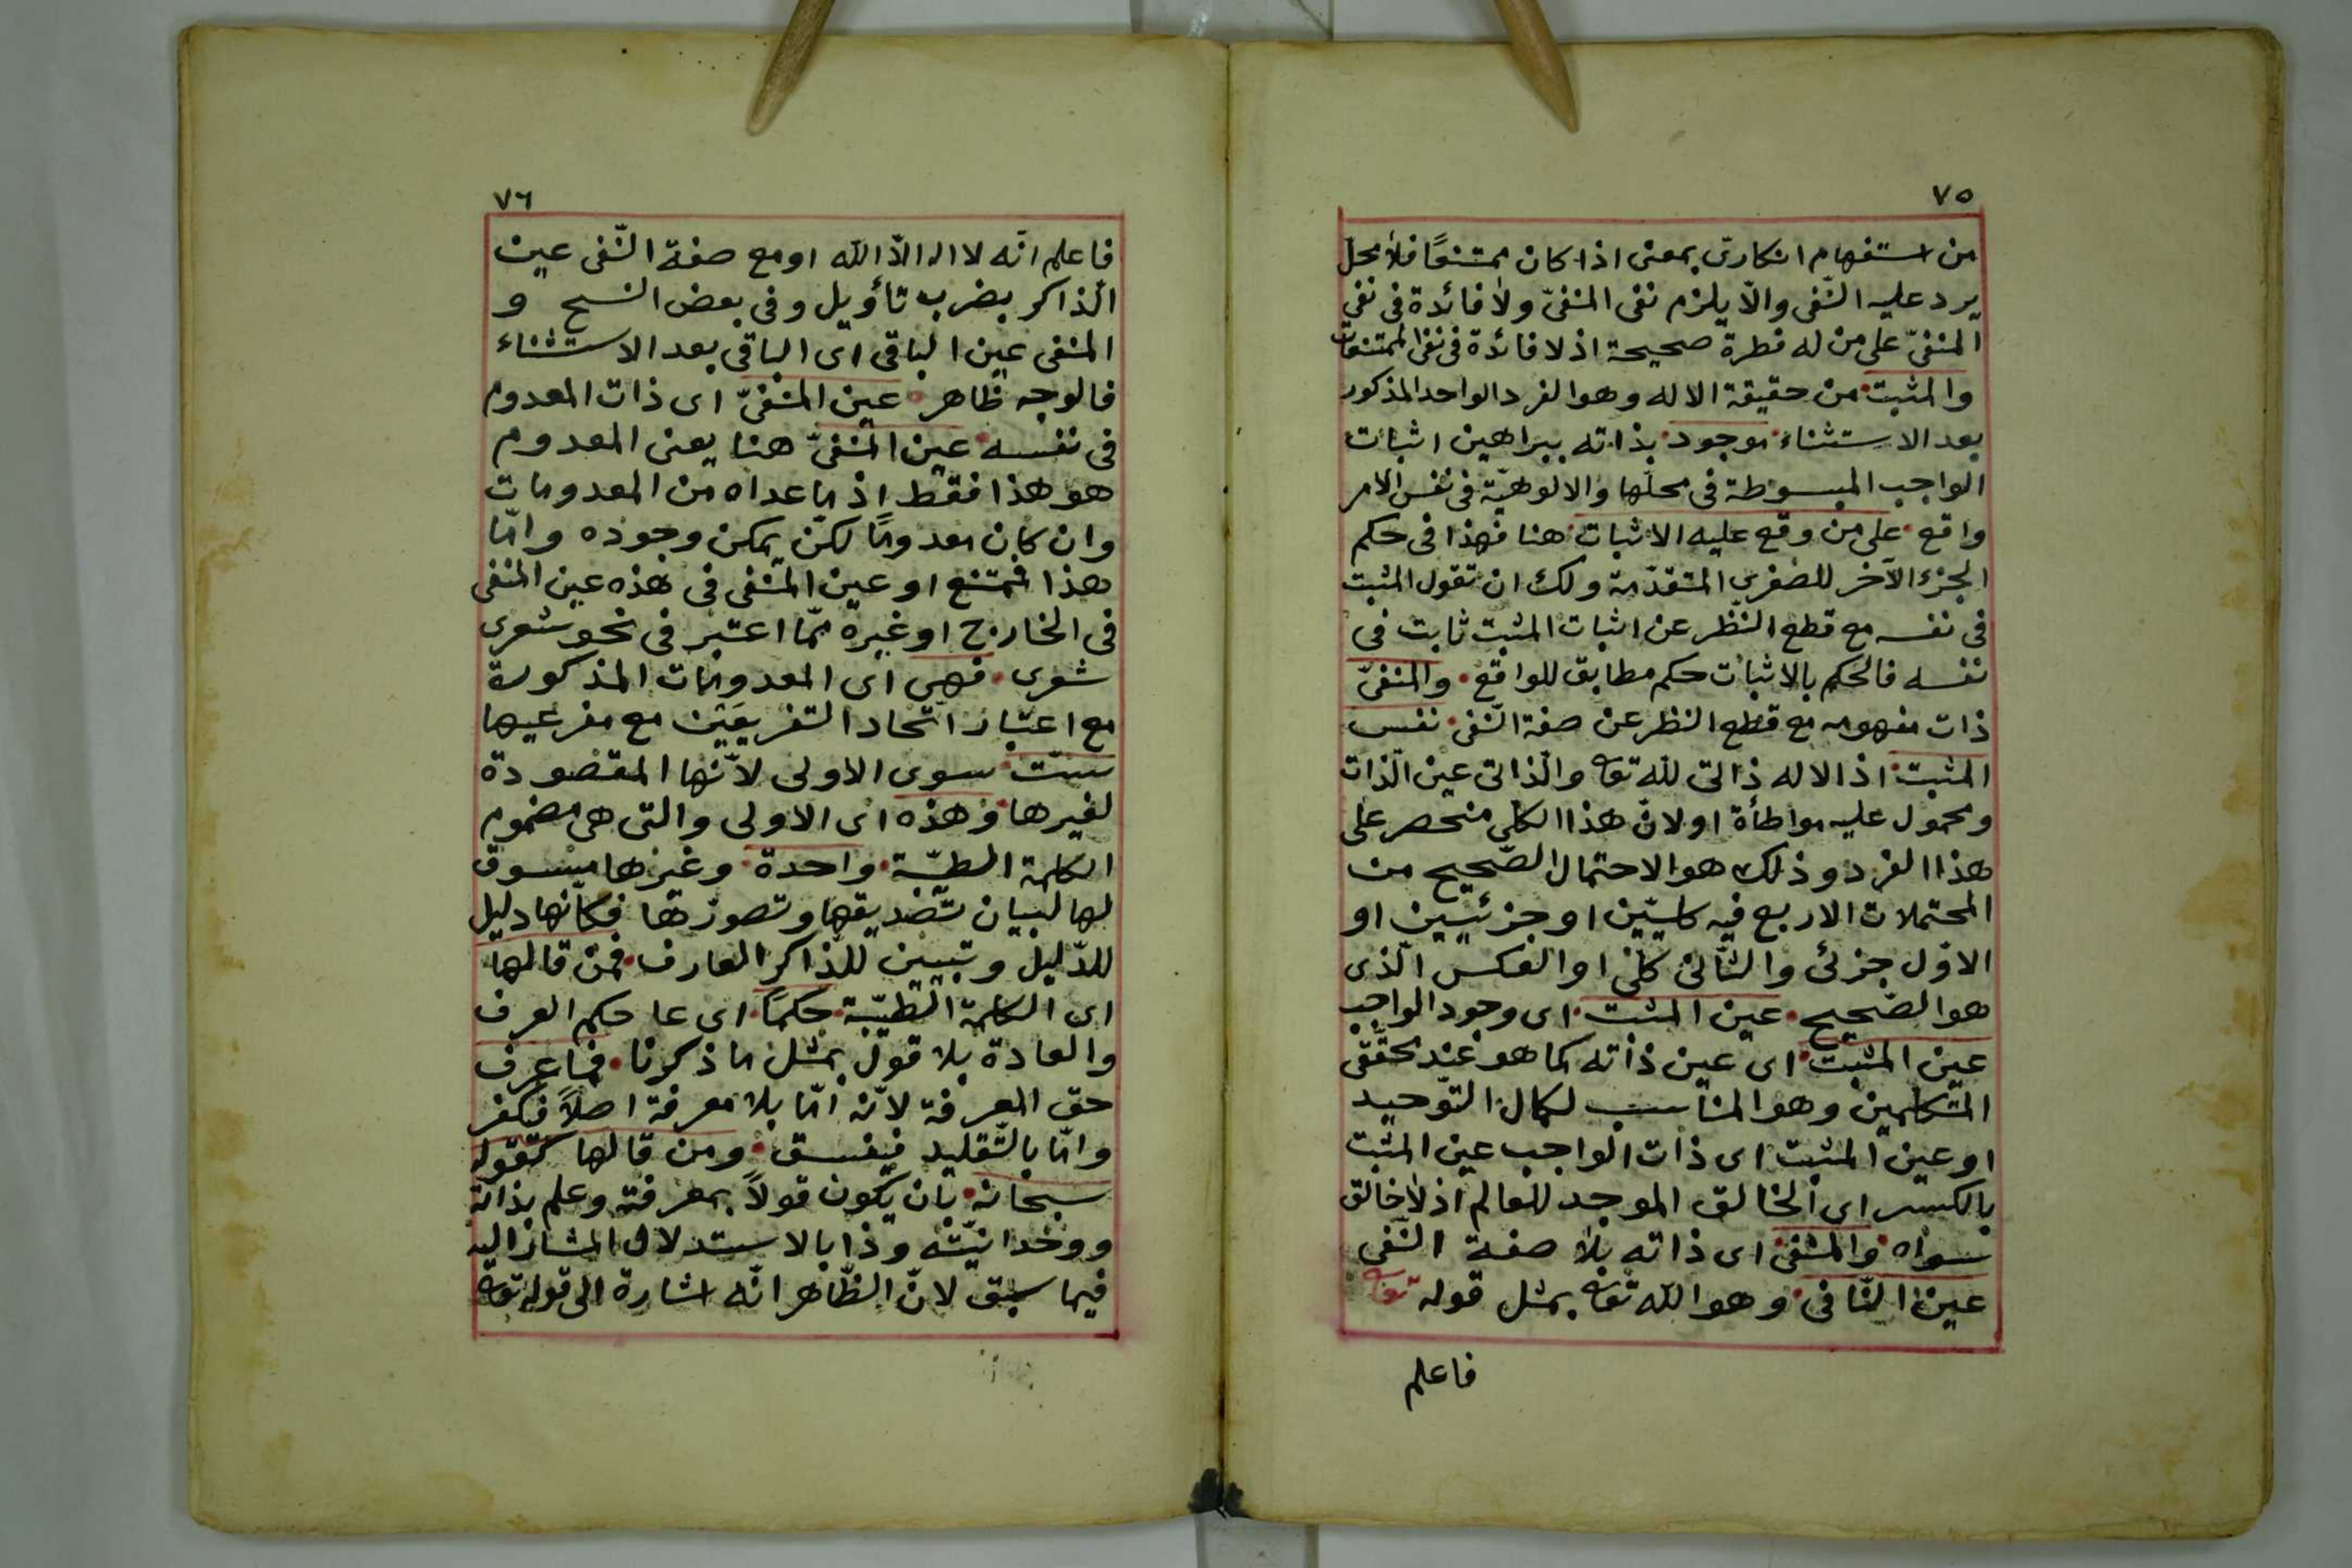 ٧٥
من استفهام انكارىّ بمعنى اذا كان ممتنعًا فلا محلّ
يرد عليه النّفى والّا يلزم نفى المنفىّ ولا فائدة فى نفى
المنفىّ على من له فطرة صحيحة اذ لا فائدة فى نفى الممتنعات
والمثبت من حقيقة الاله وهو الفرد الواحد المذكور
بعد الاستثناء موجود بذاته ببراهين اثبات
الواجب المبسوطة فى محلّها والالوهيّة فى نفس الامر
واقع على من وقع عليه الاثبات هنا فهذا فى حكم
الجزء الآخر للصغرى المتقدّمة ولك ان تقول المثبت
فى نفسه مع قطع النّظر عن اثبات المثبت ثابت فى
نفسه فالحكم بالاثبات حكم مطابق للواقع والمنفىّ
ذات مفهومه مع قطع النظر عن صفة النّفى نفس
المثبت اذ الاله ذاتى لله تعه والذّاتى عين الذّات
ومحمول عليه مواطأة او لانّ هذا الكلى منحصر على
هذا الفرد وذلك هو الاحتمال الصّحيح من
المحتملات الاربع فيه كليّين او جزئيين او
الاوّل جزئى والثّانى كلّى او العكس الّذى
هو الصّحيح عين المثبت اى وجود الواجب
عين المثبت اى عين ذاته كما هو عند محقّقى
المتكلمين وهو المناسب لكمال التّوحيد
او عين المثبت اى ذات الواجب عين المثبت
بالكسر اى الخالق الموجد للعالم اذ لا خالق
سواه والمنفى اى ذاته بلا صفة النّفى
عين النّافى وهو الله تعه بمثل قوله تعه
فاعلم
٧٦
فاعلم انّه لا اله الّا الله او مع صفة النّفى عين
الذاكر بضرب تأويل وفى بعض النسخ و
المنفى عين الباقى اى الباقى بعد الاستثناء
فالوجه ظاهر عين المنفىّ اى ذات المعدوم
فى نفسه عين المنفىّ هنا يعنى المعدوم
هو هذا فقط اذ ما عداه من المعدومات
وان كان معدومًا لكن يمكن وجوده وامّا
هذا فممتنع او عين المنفى فى هذه عين المنفى
فى الخارج او غيره ممّا اعتبر فى نحو شعرى
شعرى فهى اى المعدومات المذكورة
مع اعتبار اتّحاد التفريعَين مع مفرعيهما
ستّ سوى الاولى لانّها المقصودة
لغيرها وهذه اى الاولى والتى هى مضموم
الكلمة الطيّبة واحدة وغيرها مسوق
لها لبيان تصديقها وتصورها فكانّها دليل
للدّليل وتبيين للذّاكر العارف فمن قالها
اى الكلمة الطيّبة حكمًا اى عا حكم العرف
والعادة بلا قول بمثل ما ذكرنا فما عرف
حق المعرفة لانّه امّا بلا معرفة اصلاً فكفر
وامّا بالتّقليد فيفسق ومن قالها كقوله
سبحانه بان يكون قولاً بمعرفة وعلم بذاته
ووحدانيّته وذا بالاستدلال المشار اليه
فيما سبق لانّ الظّاهر انّه اشارة الى قوله تعه